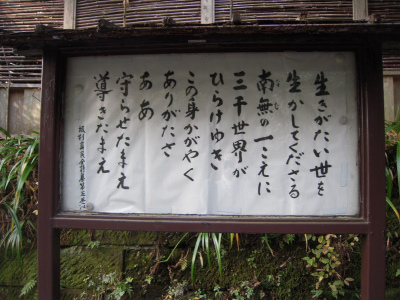 生きがたい世を
生かしてくださる
南無の一こえに
三千世界が
ひらけゆき
この身かがやく
ありがたさ
ああ
守らせたまえ
導きたまえ
坂村真民